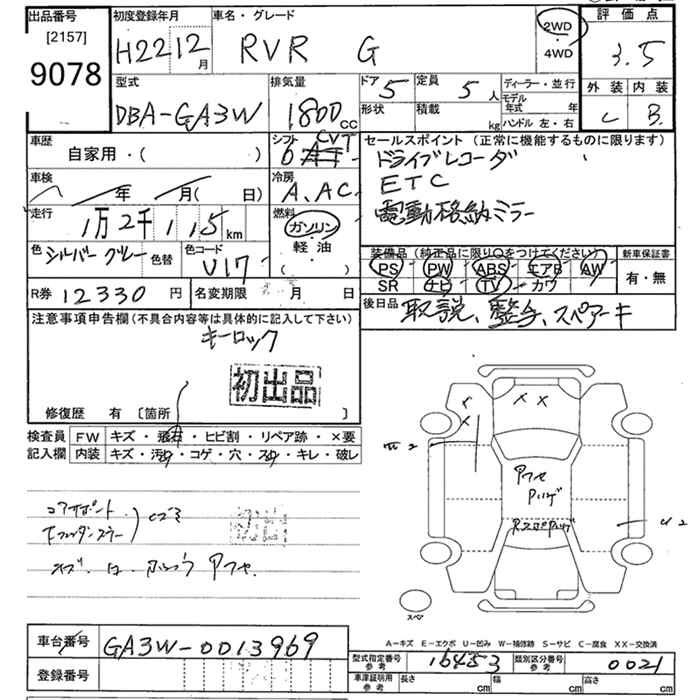 出品番号
[2157]
9078
初度登録年月
H22 12月
車名・グレード
RVR G
2WD
・
4WD
評価点
3.5
外装 内装
C B
型式
DBA-GA3W
排気量
1800cc
ドア 5
定員 5人
形状
積載 kg
ディーラー・並行
モデル年式 年
ハンドル 左・右
車歴
自家用・( )
シフト
CVT
車検
年 月( 日)
冷房
A.AC
走行
1万2千115km
燃料
ガソリン
軽油
( ・ )
色 シルバーグレー 色替
色コード
U17
R券 12330円
名変期限 月 日
セールスポイント(正常に機能するものに限ります)
ドライブレコーダ
ETC
電動格納ミラー
装備品(純正品に限り○をつけてください)
PS PW ABS エアB AW
SR ナビ TV カワ
新車保証書
有・無
後日品
取説、整手、スペアーキ
注意事項申告欄(不具合内容等は具体的に記入して下さい)
キーロック
初出品
修復歴 有 [箇所 ]
検査員記入欄
FW キズ・飛石・ヒビ割・リペア跡・×要
内装 キズ・汚れ・コゲ・穴・スレ・キレ・破レ
コアサポート
車台番号 GA3W-0013969
登録番号
A-キズ E-エクボ U-凹み W-補修跡 S-サビ C-腐食 XX-交換済
型式指定番号参考 16453
類別区分番号参考 0021
車庫証明用参考 長さ cm 幅 cm 高さ cm
スペア